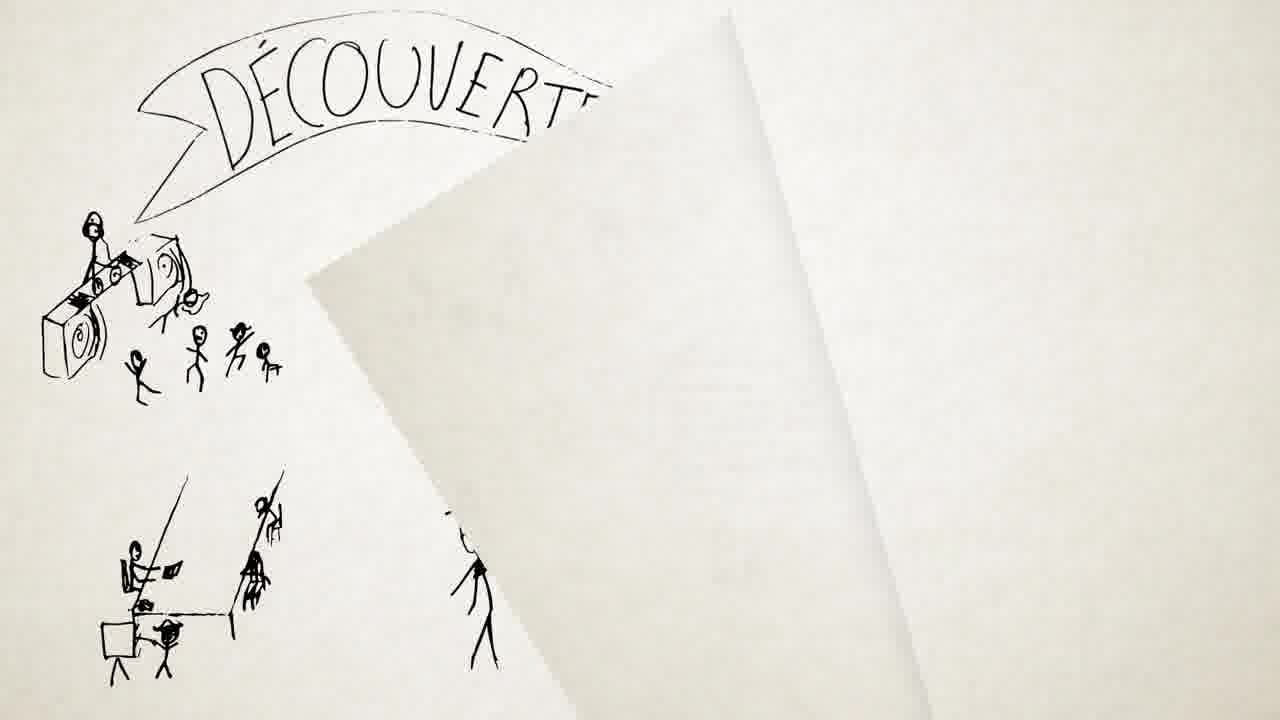 DÉCOUVERT